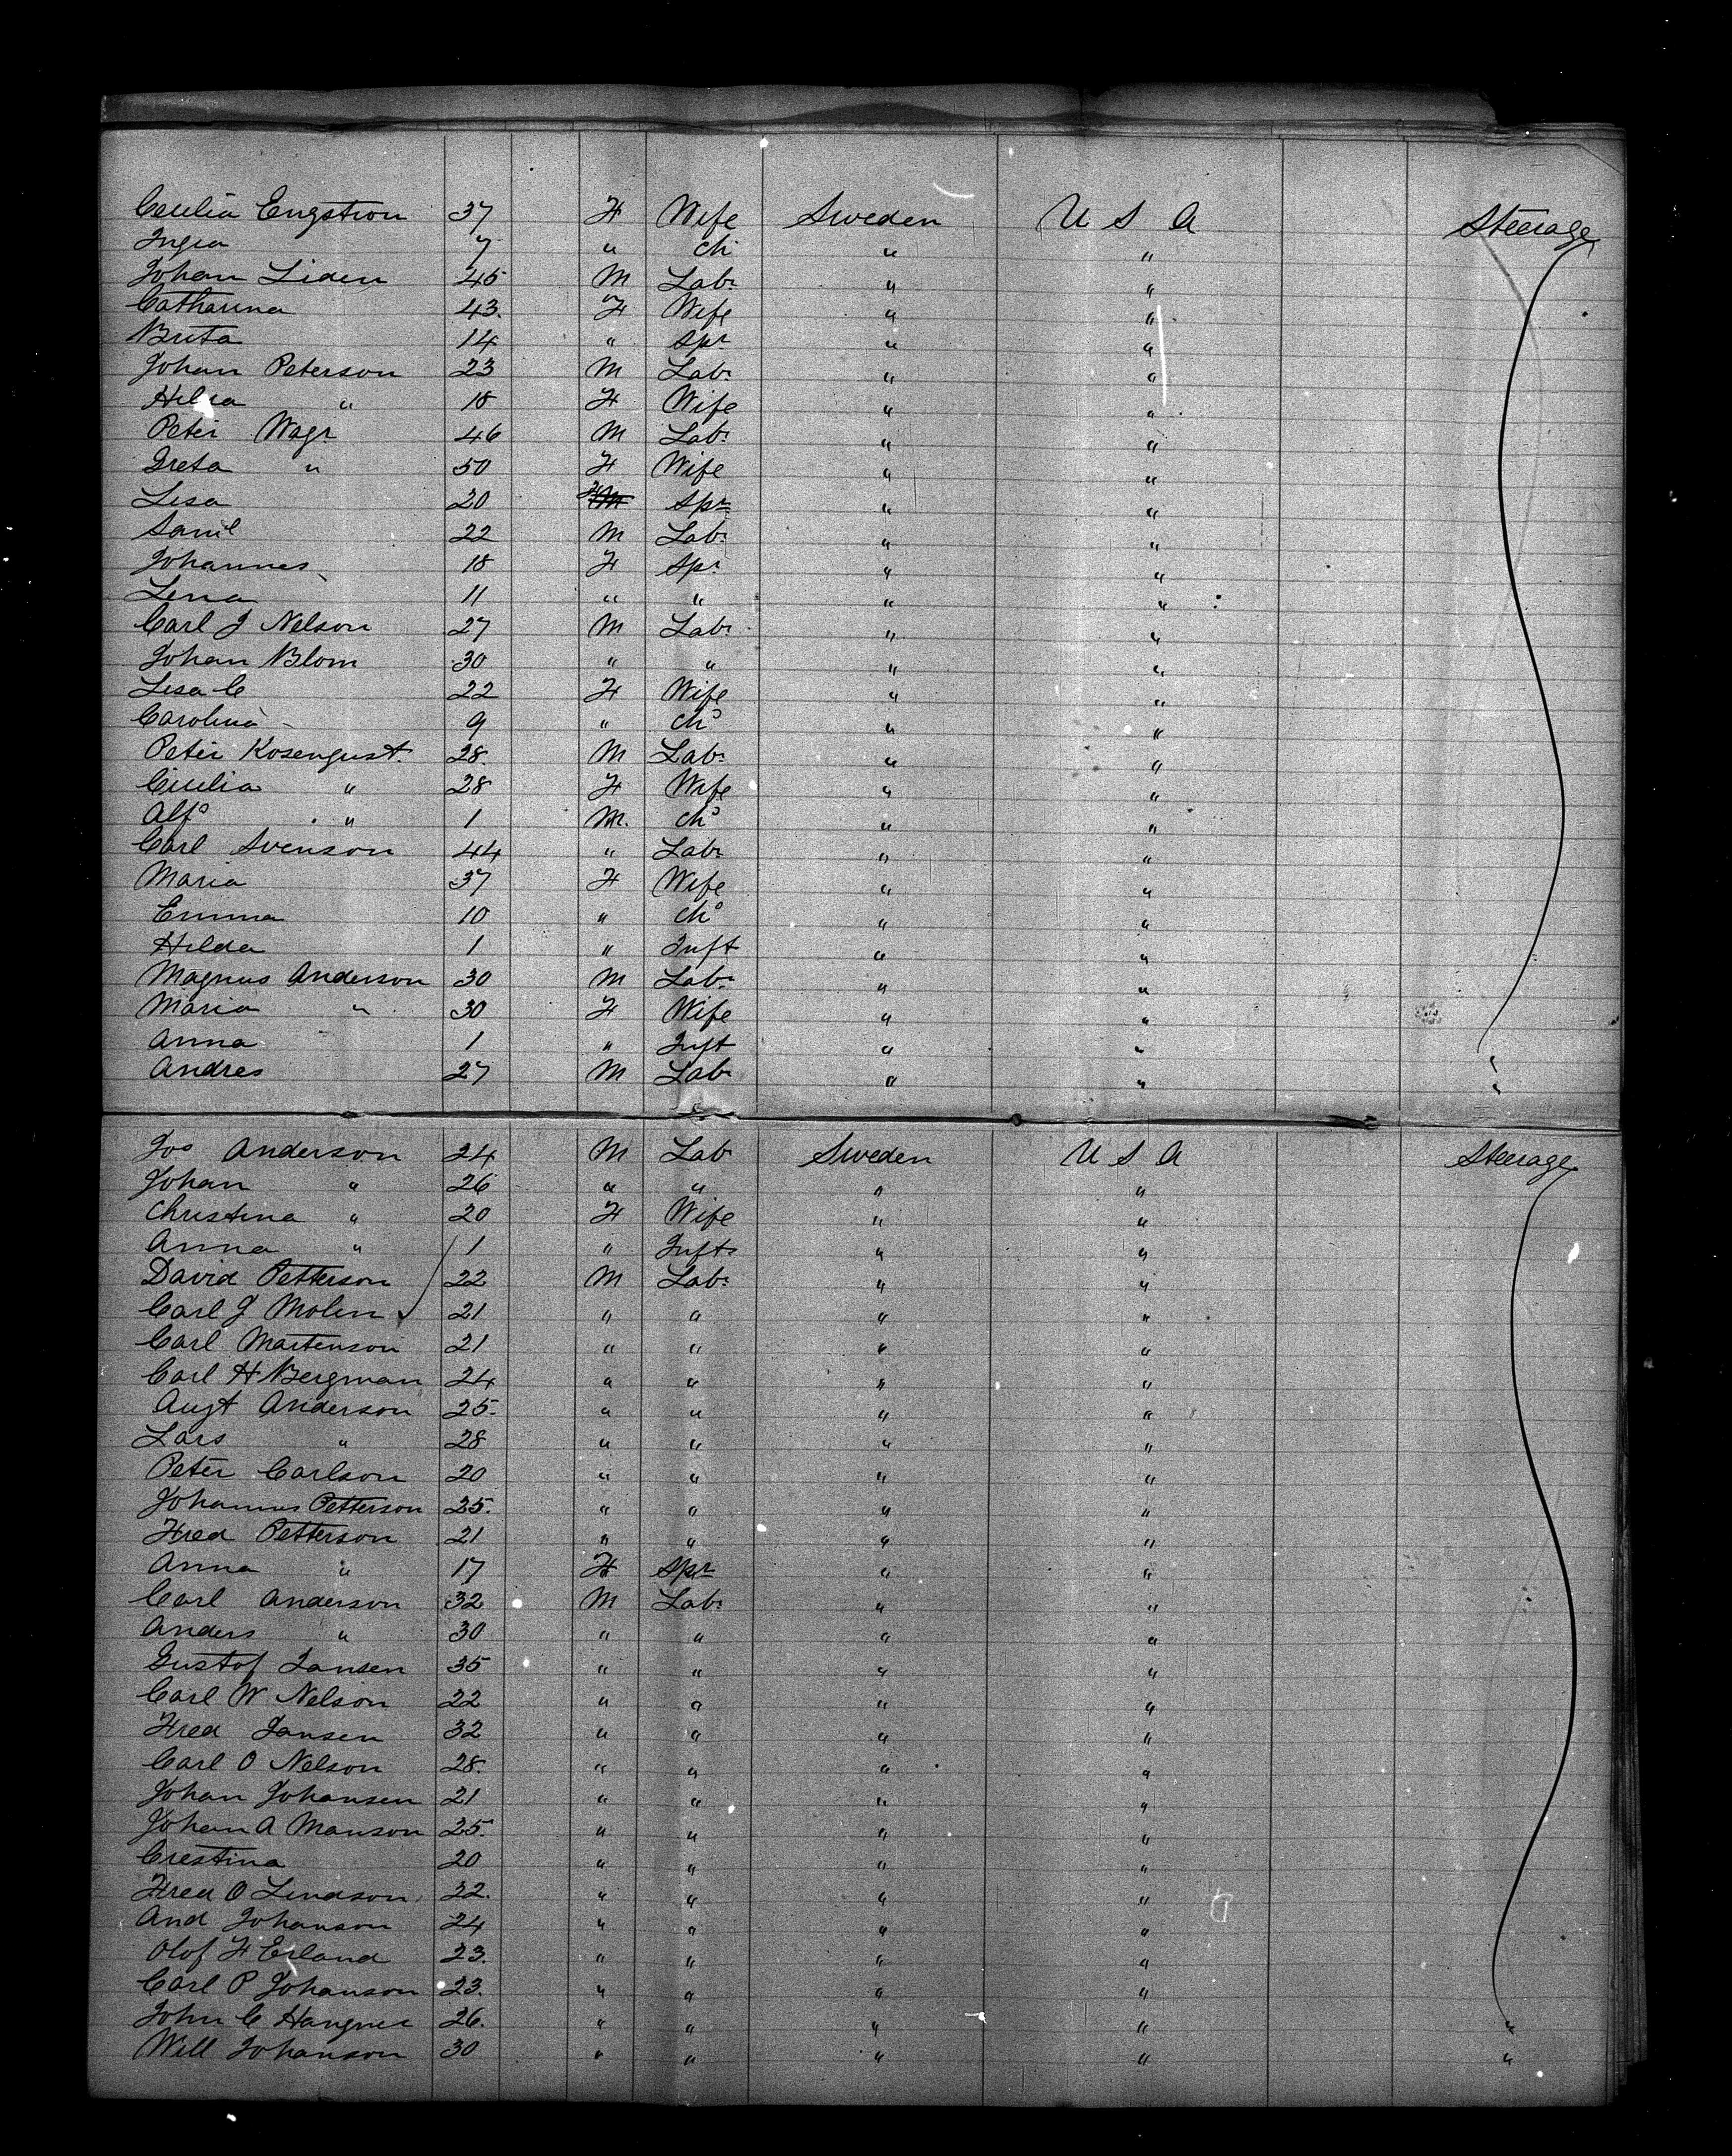 Cecilia Engstron 37 F Wife Sweden U S A Steerage
Ingra 7 " ch " "
Johan Liden 45 M Labr " "
Catharina 43. F Wife " "
Brita 14 " Spr " "
Johan Peterson 23 M Labr " "
" 18 F Wife " "
Peter Wagr 46 M Labr " "
Greta " 50 F Wife " "
Lisa 20 F Spr " "
Saml 22 M Labr " "
Johannes 18 F Spr " "
Lena 11 " " " "
Carl J Nelson 27 M Labr " "
Johan Blom 30 " " " "
Lisa C 22 F Wife " "
Carolina 9 " chd " "
Peter 28. M Labr " "
Cicilia " 28 F Wife " "
Alfd " 1 M. chd " "
Carl Svenson 44 " Labr " "
Maria 37 F Wife " "
Emma 10 " chd " "
Hilda 1 " Inft " "
Magnus Anderson 30 M Labr " "
Maria " 30 F Wife " "
Anna 1 " Inft " " "
Andres 27 M Labr " " "
Jos Anderson 24 M Lab Sweden U S A Steerage
Johan " 26 " " " "
Christina " 20 F Wife " "
Anna " 1 " Inft " "
David Petterson 22 M Labr " "
Carl J Molin 21 " " " "
Carl Martenson 21 " " " "
Carl H Bergman 24 " " " "
Augt Anderson 25. " " " "
Lars " 28 " " " "
Peter Carlson 20 " " " "
Johannes Petterson 25. " " " "
Fred Petterson 21 " " " "
Anna " 17 F Spr " "
Carl Anderson 32 M Labr " "
Anders " 30 " " " "
Gustof Jansen 35 " " " "
Carl W Nelson 22 " " " "
Fred Jansen 32 " " " "
Carl O Nelson 28. " " " "
Johan Johansen 21 " " " "
Johan A Manson 25. " " " "
Crestina 20 " " " "
Fred O Lindson 22. " " " "
And Johanson 24 " " " "
Olof F Erland 23. " " " "
Carl P Johanson 23. " " " "
John C Hangner 26. " " " " "
Will Johanson 30 " " " " "